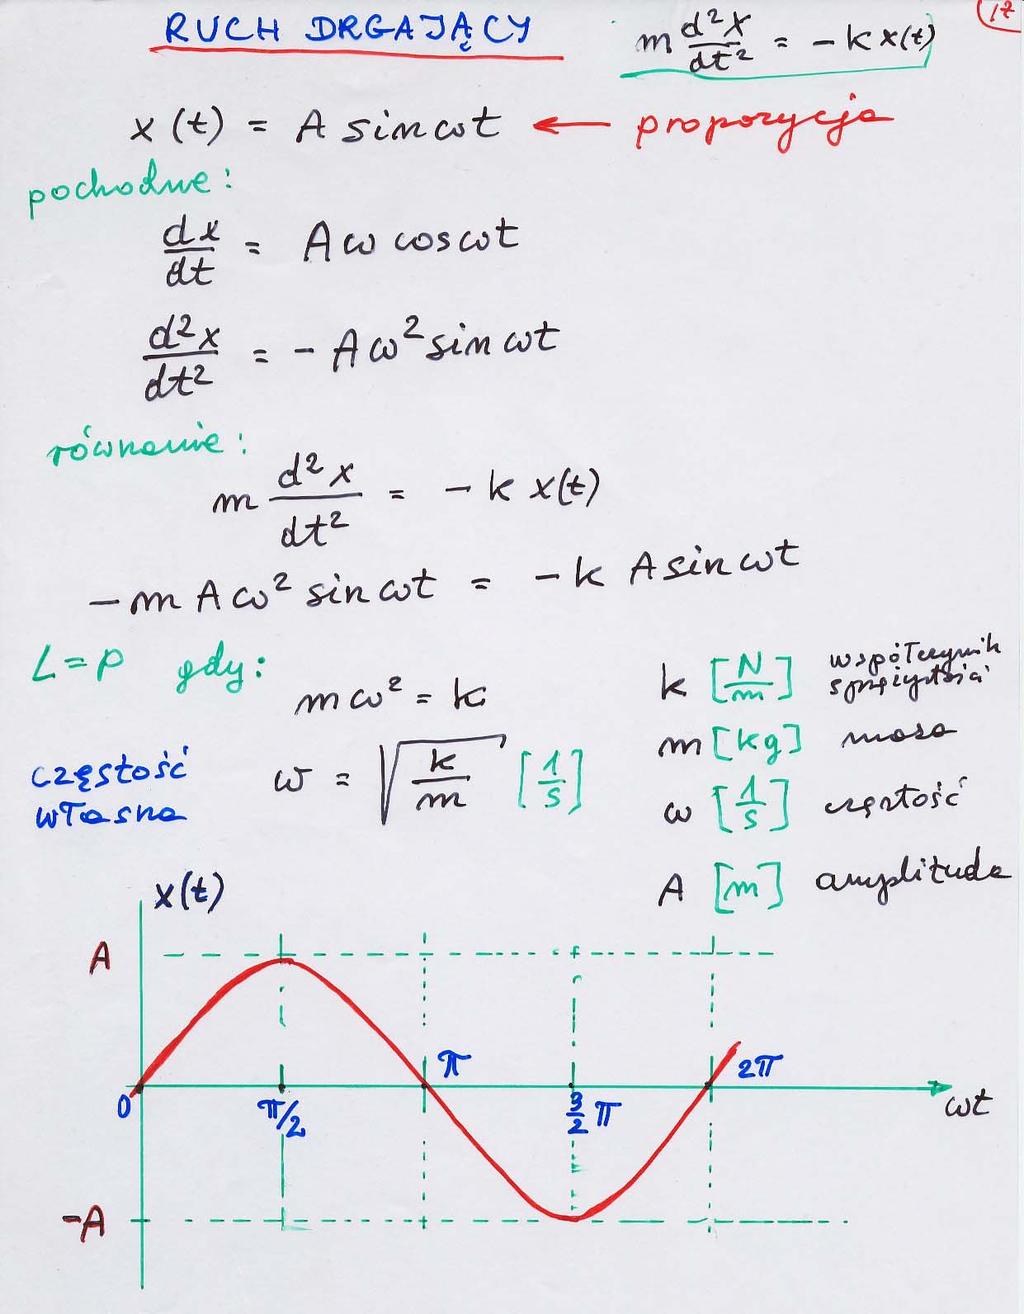 RUCH DRGAJĄCY
m d²x/dt² = - k x(t)
17
x(t) = A sin ωt ← propozycja
pochodne:
dx/dt = A ω cos ωt
d²x/dt² = - A ω² sin ωt
równanie:
m d²x/dt² = - k x(t)
- m A ω² sin ωt = - k A sin ωt
L = P gdy:
m ω² = k
częstość własna
ω = √(k/m) [1/s]
k [N/m] współczynnik sprężystości
m [kg] masa
ω [1/s] częstość
A [m] amplituda
x(t)
A
π
2π
0
π/2
3/2 π
ωt
-A